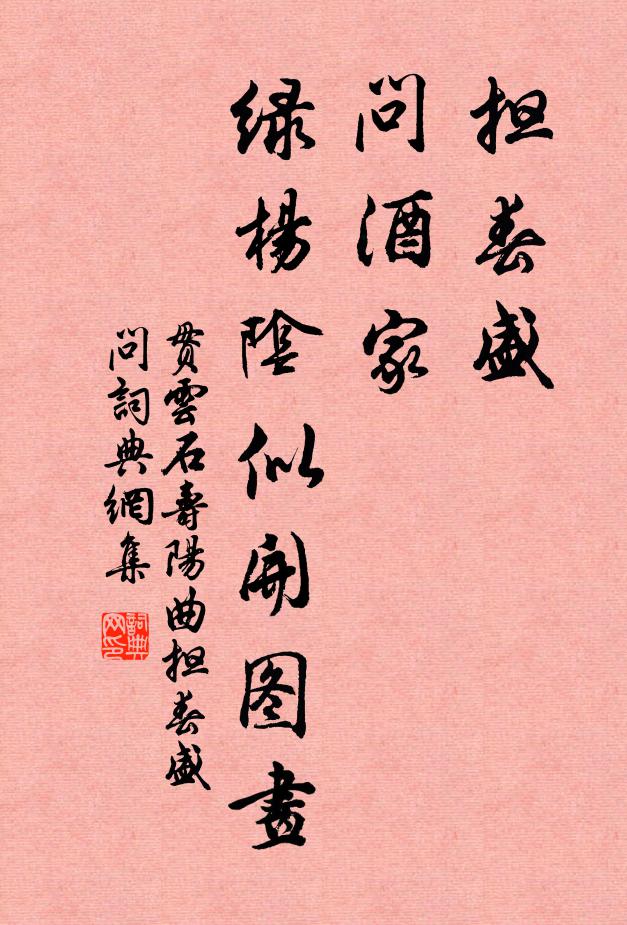 担春盛
问酒家
绿杨阴似开图画
贯云石寿阳曲担春盛
问词典网集
词典网印